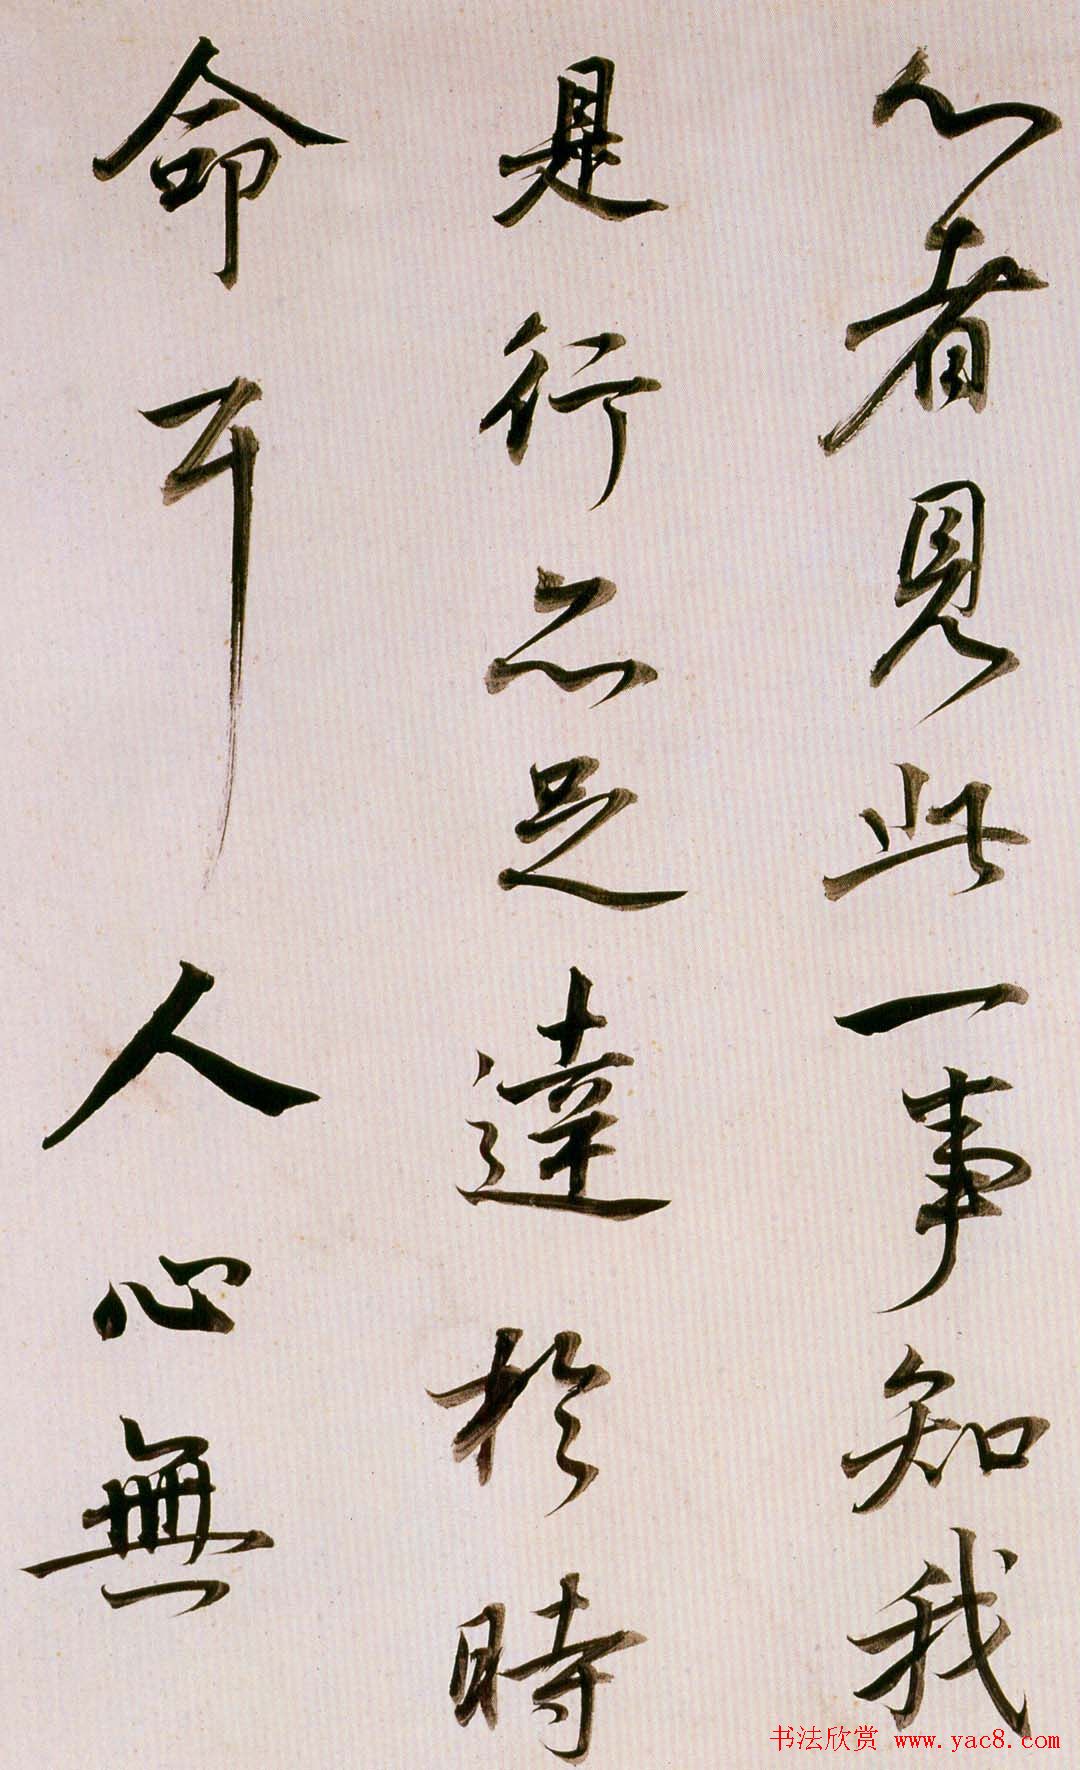 心者見此一事知我
是行亦足達於時
命耳 人心無
书法欣赏 www.yac8.com